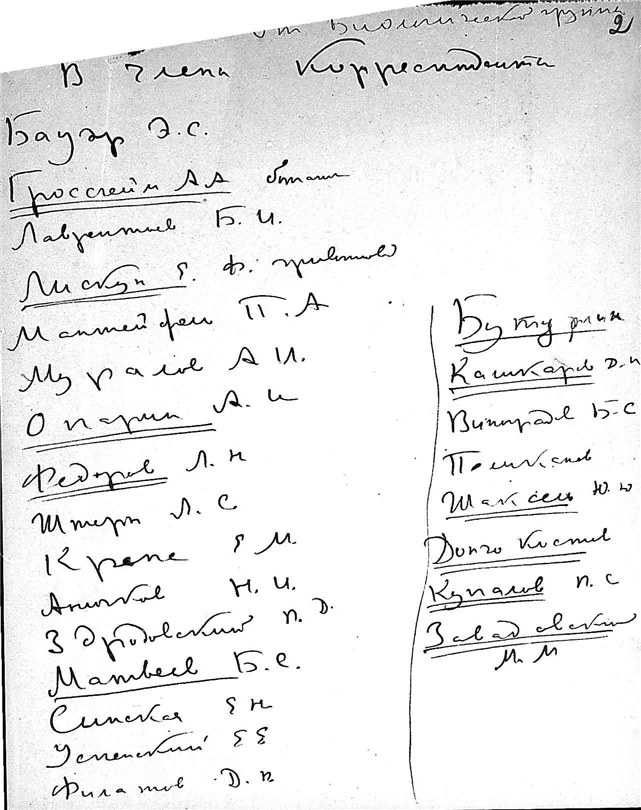 от Биологической группы
2
В члены Корреспонденты
Бауэр Э.С.
Гроссгейм А А ботаник
Лаврентьев Б. И.
Лискун Е. Ф. животново
Мантейфель П. А
Муралов А И.
Опарин А. И
Федоров Л. Н
Штерн Л. С
Крепс Е М
Аничков Н. И.
Здродовский П. Д.
Матвеев Б. С.
Синская Е Н
Успенский Е Е
Филатов Д. П
Бутурлин
Кашкаров Д. Н
Виноградов Б-С
Полканов
Шаксель Ю. Ю
Дончо Костов
Купалов П. С
Завадовский
М. М